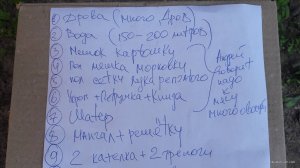 1 Дрова (много дров)
2 Вода (150-200 литров)
3 Мешок картошки
4 Пол мешка морковки
5 пол сетки лука репчатого
6 Укроп + Петрушка + Кинза
7 Шатёр
8 Мангал + решётку
9 2 котелка + 2 треноги
надо
к мясу
много овощей